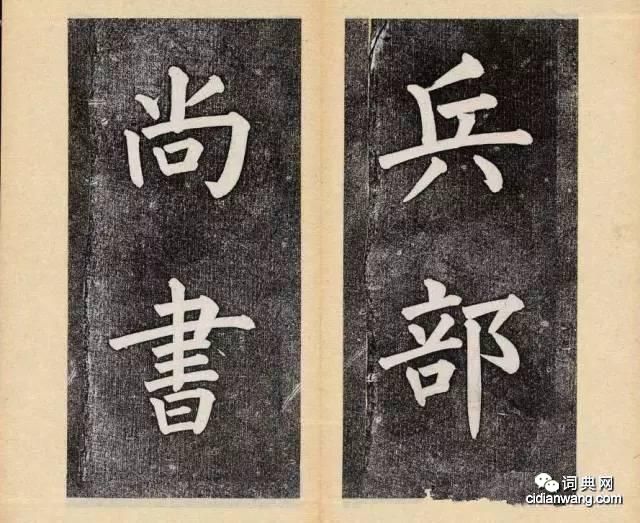 兵部
尚書
词典网
cidianwang.com